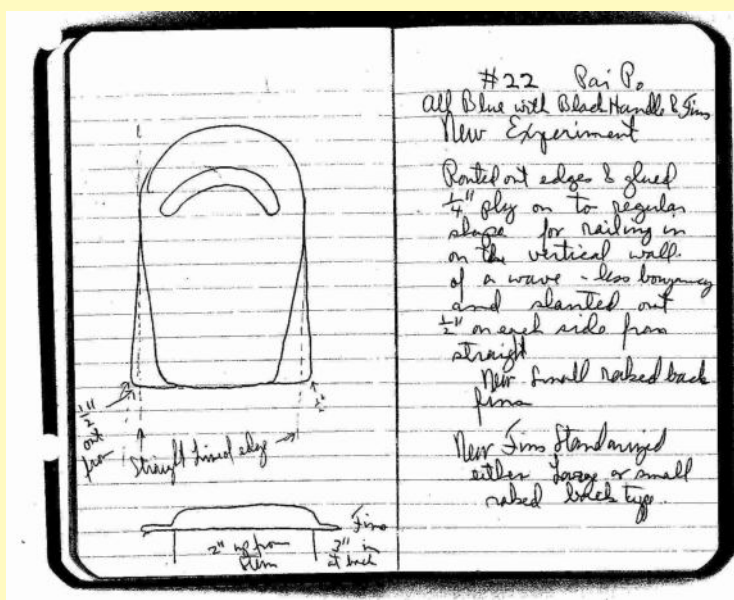 1/2"
out
from
Straight lined edge
1/2"
Fins
2" up from
stern
3" in
at back
#22 Pai Po
All Blue with Black Handle & Fins
New Experiment
Routed out edges & glued
1/4" ply on to regular
shape for railing in
on the vertical wall
of a wave - less bouyancy
and slanted out
1/2" on each side from
straight
New Small raked back
fins
New Fins Standarized
either Large or small
raked back type.